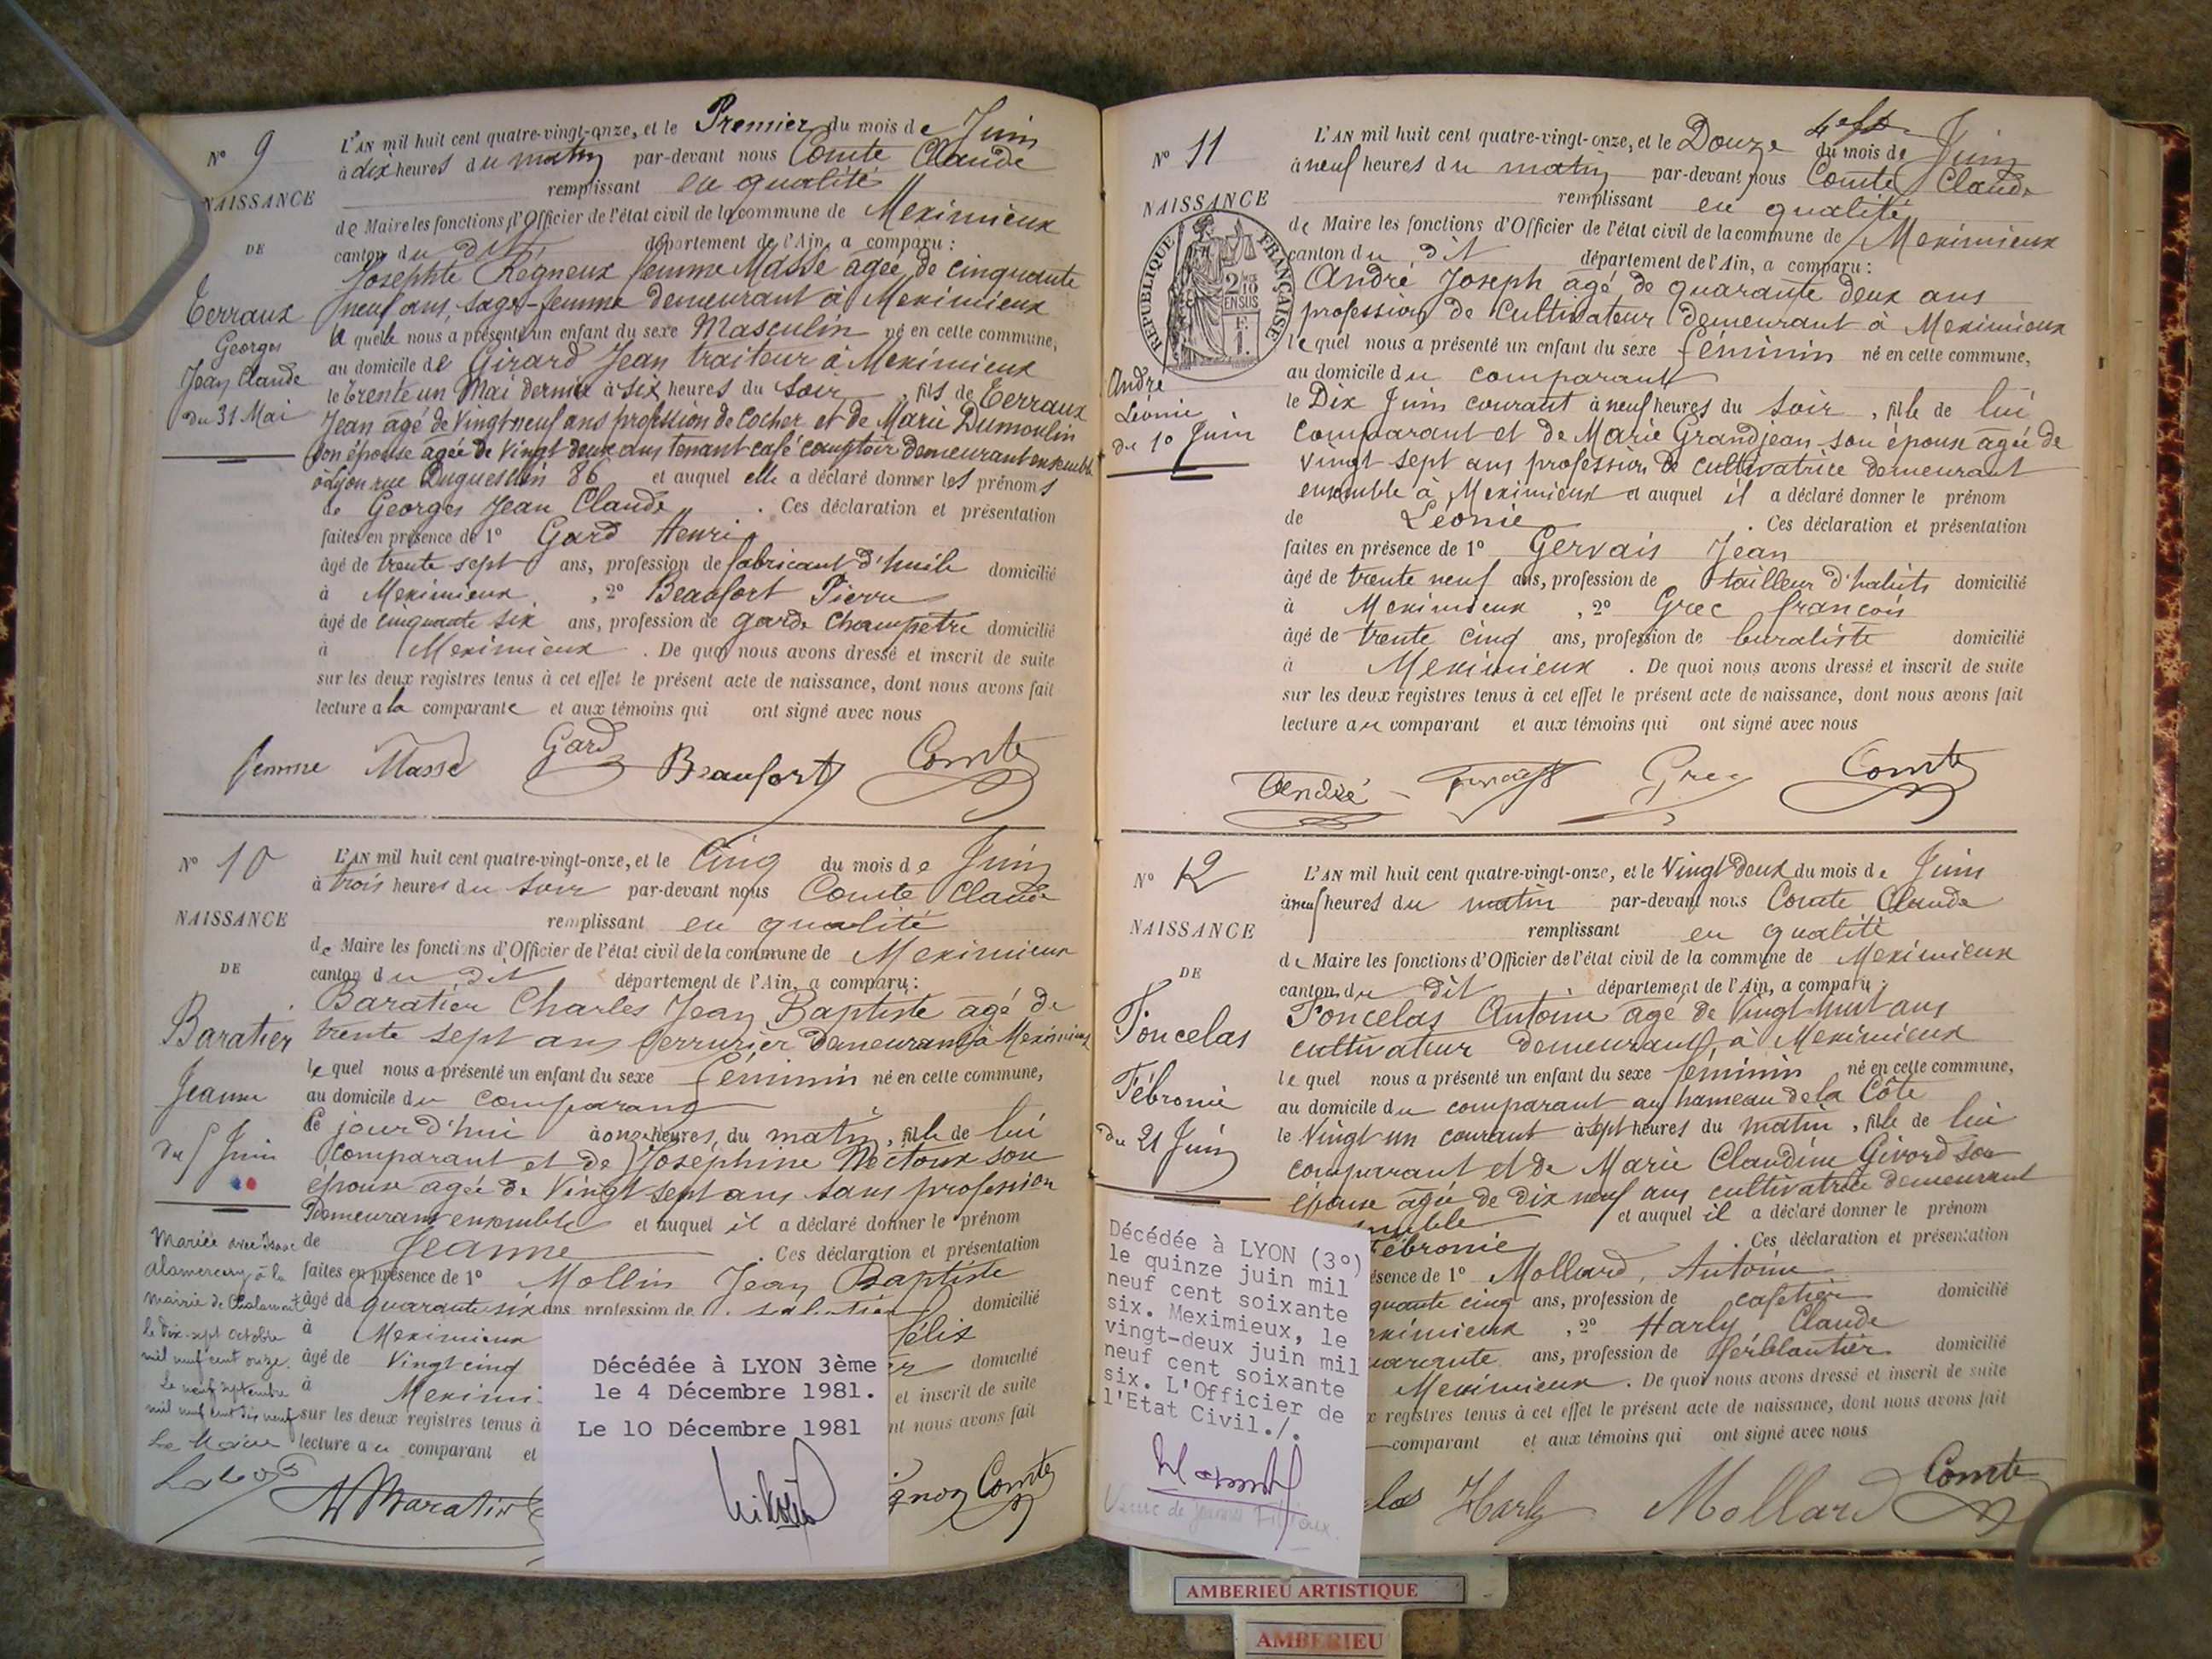 N° 9
NAISSANCE
DE
Terraux
Georges
Jean Claude
du 31 Mai
L'AN mil huit cent quatre-vingt-onze, et le Premier du mois de Juin
à dix heures du matin par-devant nous Comte Claude
remplissant en qualité
de Maire les fonctions d'Officier de l'état civil de la commune de Meximieux
canton du dit département de l'Ain, a comparu :
Josephte Regneux femme Massé agée de cinquante
neuf ans, sage-femme demeurant à Meximieux
la quelle nous a présenté un enfant du sexe Masculin né en cette commune,
au domicile de Girard Jean traiteur à Meximieux
le trente un Mai dernier à six heures du soir, fils de Terraux
Jean agé de Vingt neuf ans profession de cocher et de Marie Dumoulin
son épouse agée de Vingt deux ans tenant café comptoir demeurant ensemble
à Lyon rue Duguesclin 86 et auquel elle a déclaré donner les prénoms
de Georges Jean Claude . Ces déclaration et présentation
faites en présence de 1° Gard Henri
âgé de trente sept ans, profession de fabricant d'huile domicilié
à Meximieux , 2° Beaufort Pierre
âgé de cinquante six ans, profession de garde champetre domicilié
à Meximieux . De quoi nous avons dressé et inscrit de suite
sur les deux registres tenus à cet effet le présent acte de naissance, dont nous avons fait
lecture a la comparante et aux témoins qui ont signé avec nous
femme Massé Gard Beaufort Comte
N° 10
NAISSANCE
DE
Baratier
Jeanne
du 5 Juin
L'AN mil huit cent quatre-vingt-onze, et le Cinq du mois de Juin
à trois heures du soir par-devant nous Comte Claude
remplissant en qualité
de Maire les fonctions d'Officier de l'état civil de la commune de Meximieux
canton du dit département de l'Ain, a comparu :
Baratier Charles Jean Baptiste agé de
trente sept ans serrurier demeurant à Meximieux
le quel nous a présenté un enfant du sexe féminin né en cette commune,
au domicile du comparant
ce jour d'hui à onze heures, du matin, fille de lui
comparant et de Joséphine Nectoux son
épouse agée de Vingt sept ans sans profession
demeurant ensemble et auquel il a déclaré donner le prénom
de Jeanne . Ces déclaration et présentation
faites en présence de 1° Mollin Jean Baptiste
âgé de quarante six ans profession de domicilié
à Meximieux félix
âgé de Vingt cinq domicilié
à Meximi et inscrit de suite
sur les deux registres tenus à nt nous avons fait
lecture au comparant et
Baratier gnon Comte
Mariée avec Isaac
Alamercery à la
mairie de Chalamont
le dix-sept octobre
mil neuf cent onze.
Le neuf septembre
mil neuf cent dix neuf
Le Maire
Décédée à LYON 3ème
le 4 Décembre 1981.
Le 10 Décembre 1981
N° 11
NAISSANCE
REPUBLIQUE FRANÇAISE
2/10
EN SUS
F.
1.
André
Léonie
du 10 Juin
L'AN mil huit cent quatre-vingt-onze, et le Douze du mois de Juin
à neuf heures du matin par-devant nous Comte Claude
remplissant en qualité
de Maire les fonctions d'Officier de l'état civil de la commune de Meximieux
canton du dit département de l'Ain, a comparu :
André Joseph agé de quarante deux ans
profession de cultivateur demeurant à Meximieux
le quel nous a présenté un enfant du sexe féminin né en cette commune,
au domicile du comparant
le Dix Juin courant à neuf heures du soir, fille de lui
comparant et de Marie Grandjean son épouse agée de
vingt sept ans profession de cultivatrice demeurant
ensemble à Meximieux et auquel il a déclaré donner le prénom
de Léonie . Ces déclaration et présentation
faites en présence de 1° Gervais Jean
âgé de trente neuf ans, profession de tailleur d'habits domicilié
à Meximieux , 2° Grec françois
âgé de trente cinq ans, profession de buraliste domicilié
à Meximieux . De quoi nous avons dressé et inscrit de suite
sur les deux registres tenus à cet effet le présent acte de naissance, dont nous avons fait
lecture au comparant et aux témoins qui ont signé avec nous
André Gervais Grec Comte
N° 12
NAISSANCE
DE
Foncelas
Fébronie
du 21 Juin
L'AN mil huit cent quatre-vingt-onze, et le Vingt Deux du mois de Juin
à neuf heures du matin par-devant nous Comte Claude
remplissant en qualité
de Maire les fonctions d'Officier de l'état civil de la commune de Meximieux
canton du dit département de l'Ain, a comparu :
Foncelas Antoine agé de Vingt huit ans
cultivateur demeurant à Meximieux
le quel nous a présenté un enfant du sexe féminin né en cette commune,
au domicile du comparant au hameau de la Côte
le Vingt un courant à sept heures du matin, fille de lui
comparant et de Marie Claudine Givord son
épouse agée de dix neuf ans cultivatrice demeurant
emble et auquel il a déclaré donner le prénom
Fébronie . Ces déclaration et présentation
ésence de 1° Mollard, Antoine
quante cinq ans, profession de cafetier domicilié
eximieux , 2° Harly Claude
uarante ans, profession de ferblantier domicilié
Meximieux . De quoi nous avons dressé et inscrit de suite
x registres tenus à cet effet le présent acte de naissance, dont nous avons fait
comparant et aux témoins qui ont signé avec nous
las Harly Mollard Comte
Décédée à LYON (3°)
le quinze juin mil
neuf cent soixante
six. Meximieux, le
vingt-deux juin mil
neuf cent soixante
six. L'Officier de
l'Etat Civil./.
AMBERIEU ARTISTIQUE
AMBERIEU